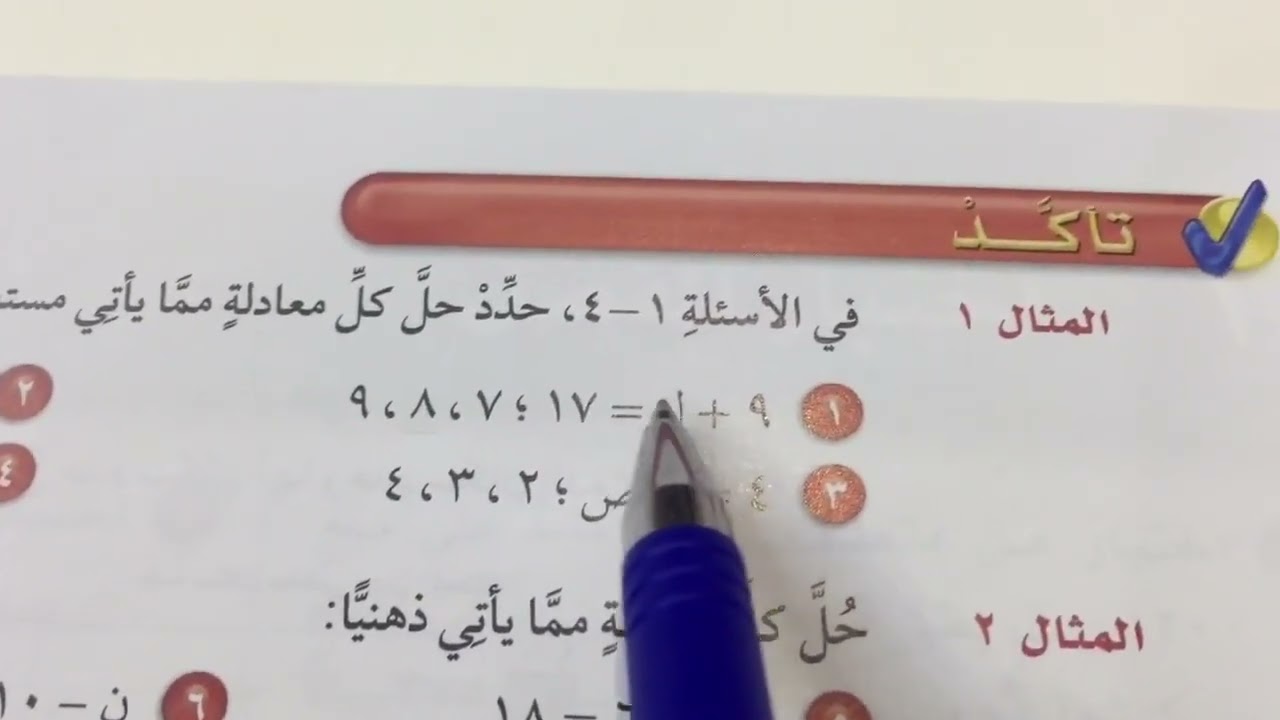 تأكَّــدْ
المثال ١ في الأسئلةِ ١–٤، حدِّدْ حلَّ كلِّ معادلةٍ ممَّا يأتِي
١ ٩ + = ١٧ ؛ ٧ ، ٨ ، ٩ ٢
٣ ٤ ص ؛ ٢ ، ٣ ، ٤ ٤
المثال ٢ حُلَّ ممَّا يأتِي ذهنيًّا:
– ١٨ ٦ ن – ١٠